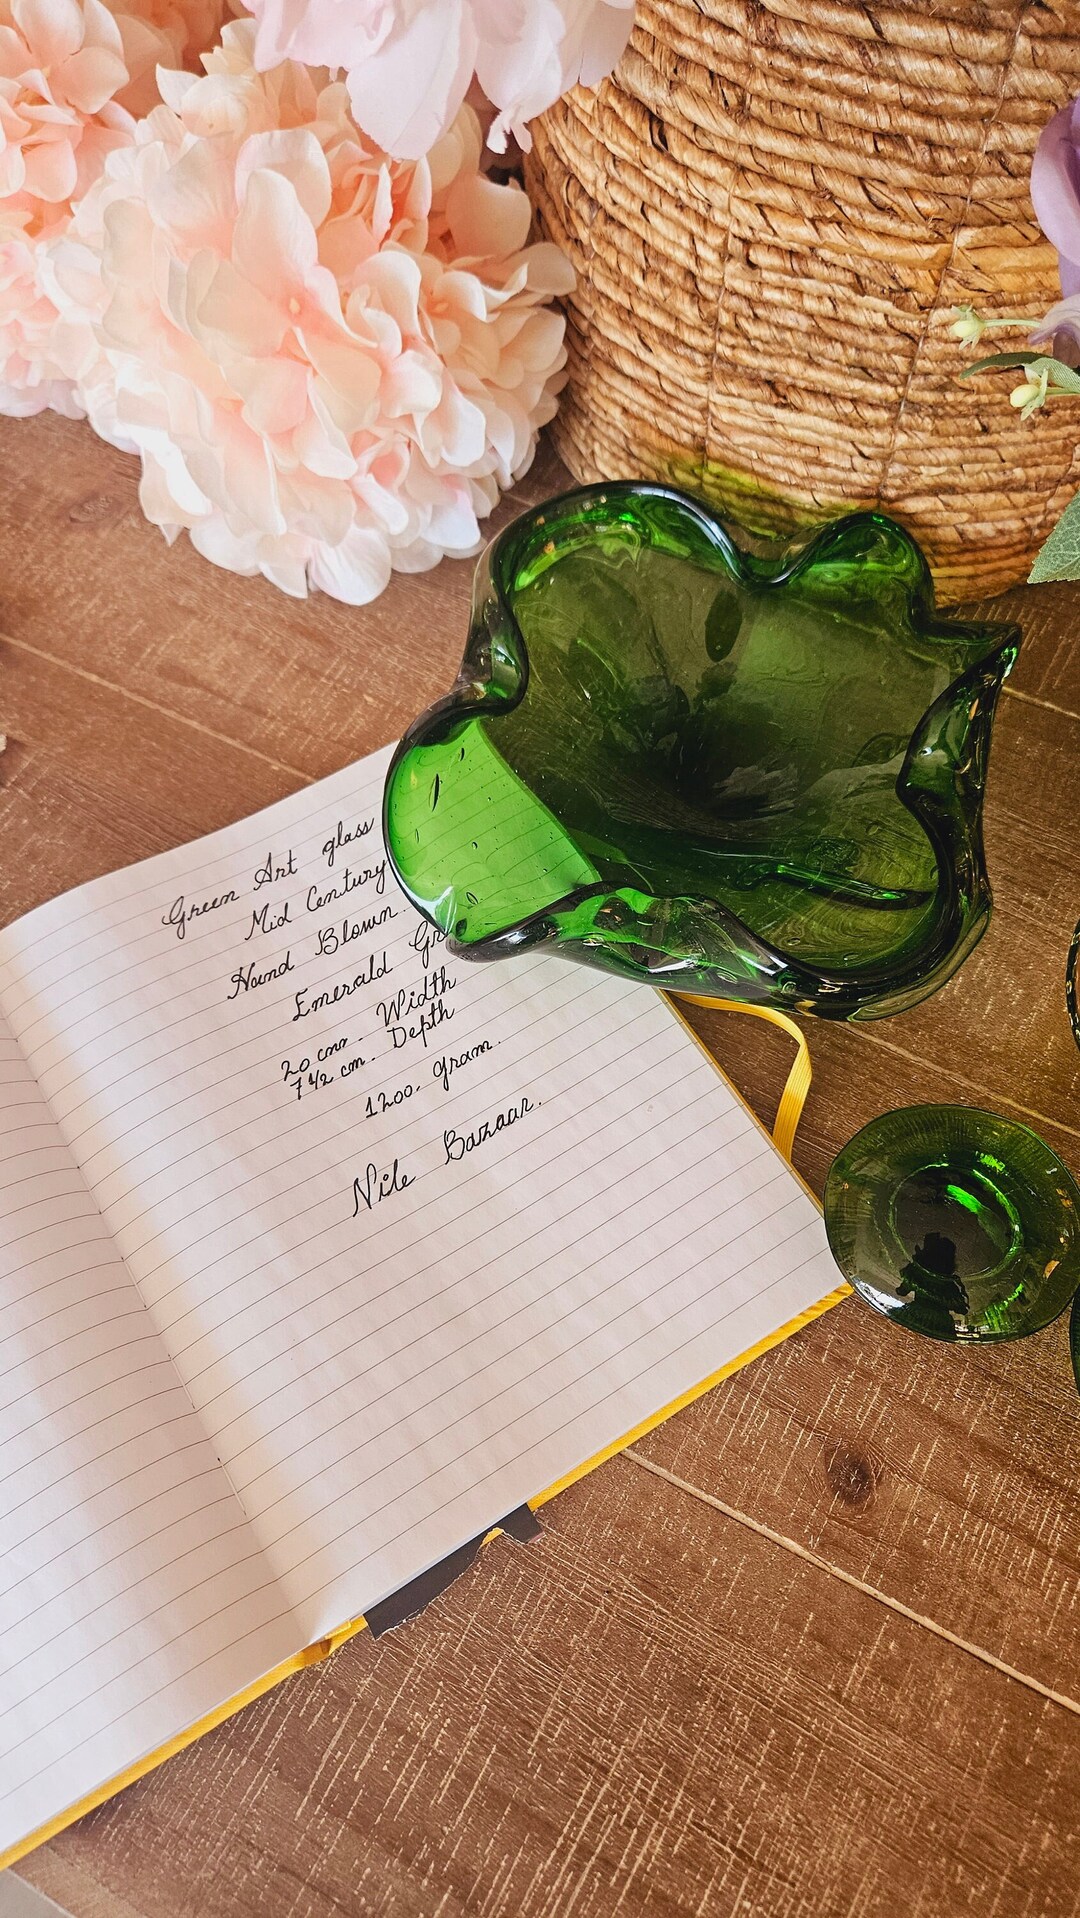 Green Art glass
Mid Century
Hand Blown.
Emerald
20 cm. Width
7 1/2 cm. Depth
1200. gram.
Nile Bazaar.